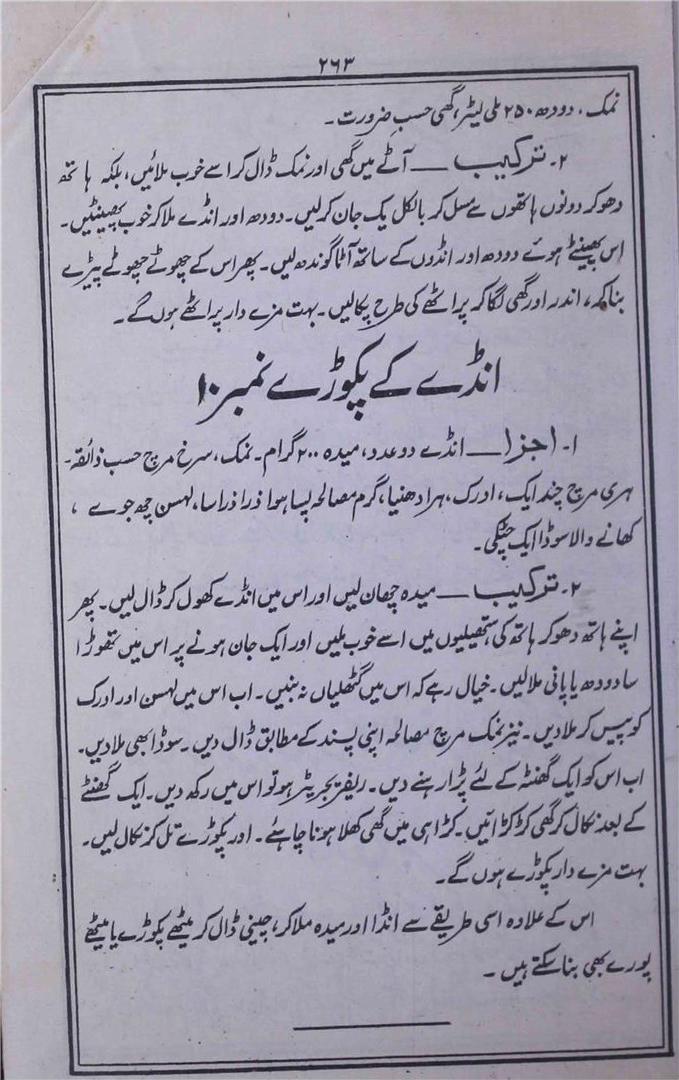 ۲۶۳
نمک، دودھ ۲۵۰ ملی لیٹر، گھی حسب ضرورت ۔
۲۔ ترکیب ــــ آٹے میں گھی اور نمک ڈال کر اسے خوب ملائیں، بلکہ ہاتھ
دھو کر دونوں ہاتھوں سے مسل کر بالکل یک جان کر لیں۔ دودھ اور انڈے ملا کر خوب پھینٹیں۔
اس پھینٹے ہوئے دودھ اور انڈوں کے ساتھ آٹا گوندھ لیں۔ پھر اس کے چھوٹے چھوٹے پیڑے
بنا کر، اندر اور گھی لگا کر پراٹھے کی طرح پکا لیں۔ بہت مزے دار پراٹھے ہوں گے۔
انڈے کے پکوڑے نمبر ۱۰
۱۔ اجزا ــــ انڈے دو عدد، میدہ ۲۰۰ گرام۔ نمک، سرخ مرچ حسب ذائقہ۔
ہری مرچ چند ایک، ادرک، ہرا دھنیا، گرم مصالحہ پسا ہوا ذرا ذرا سا، لہسن چھ جوے ،
کھانے والا سوڈا ایک چٹکی۔
۲۔ ترکیب ــــ میدہ چھان لیں اور اس میں انڈے کھول کر ڈال لیں۔ پھر
اپنے ہاتھ دھو کر ہاتھ کی ہتھیلیوں میں اسے خوب ملیں اور ایک جان ہونے پر اس میں تھوڑا
سا دودھ یا پانی ملا لیں۔ خیال رہے کہ اس میں گٹھلیاں نہ بنیں۔ اب اس میں لہسن اور ادرک
کو پیس کر ملا دیں۔ نیز نمک مرچ مصالحہ اپنی پسند کے مطابق ڈال دیں۔ سوڈا بھی ملا دیں۔
اب اس کو ایک گھنٹہ کے لئے پڑا رہنے دیں۔ ریفریجریٹر ہو تو اس میں رکھ دیں۔ ایک گھنٹے
کے بعد نکال کر گھی کڑکڑائیں۔ کڑاہی میں گھی کھلا ہونا چاہئے۔ اور پکوڑے تل کر نکال لیں۔
بہت مزے دار پکوڑے ہوں گے۔
اس کے علاوہ اسی طریقے سے انڈا اور میدہ ملا کر، چینی ڈال کر میٹھے پکوڑے یا میٹھے
پورے بھی بنا سکتے ہیں ۔